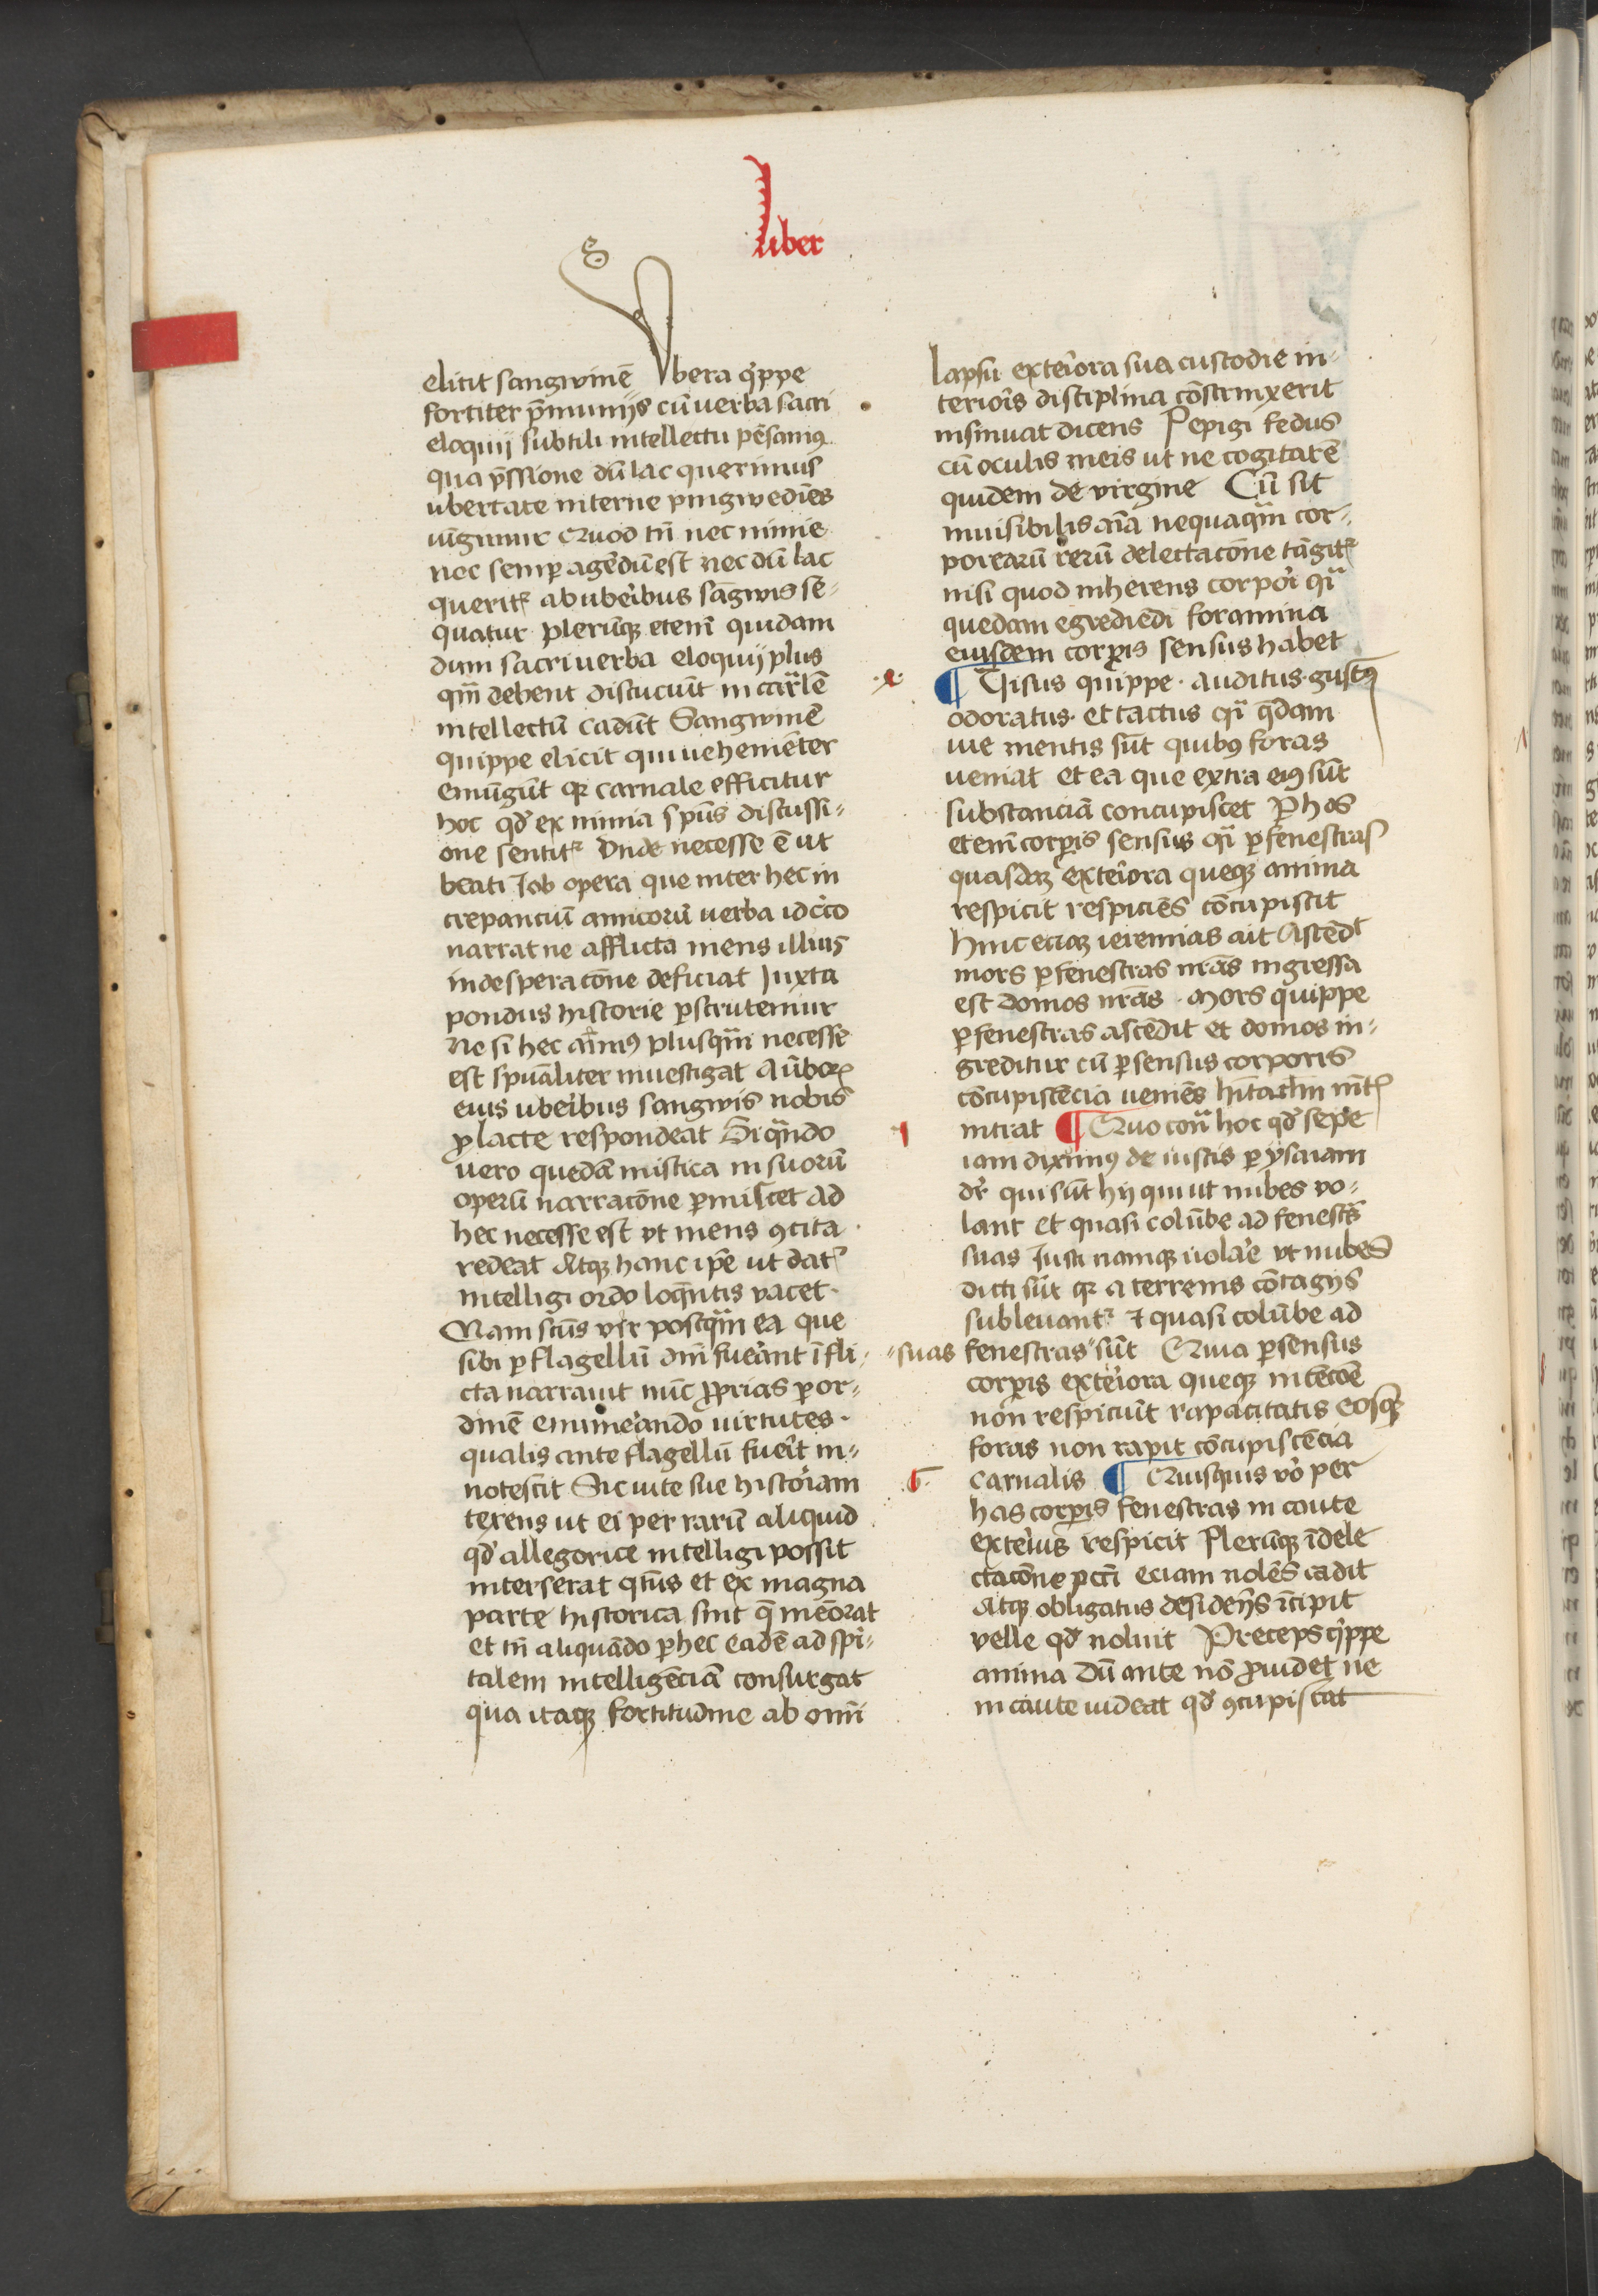 Liber
elicit sangwinē Vbera q̇ppe
fortiter p̄mimijs cū verba sacri
eloquij subtili intellectu pēsamꝯ
qua p̄ssione dū lac querimus
ubertate interne pingwedīes
ūgimur Quod tn̄ nec nimie
nec semꝑ agēdū est nec dū lac
querit᷑ ab uberibus sāgwis se-
quatur plerūqꝫ eteni quidam
dum sacri verba eloquij plus
qm̄ debent discuciūt in carlē
intellectū cadūt Sangwinē
quippe elicit qui vehemēter
emūgūt qꝛ carnale efficitur
hoc qd̓ ex nimia spūs discussi-
one sentit᷑ Vnde necesse ē ut
beati Job opera que inter hec in
crepanciū amicorū verba idcirco
narrat ne afflicta mens illius
in desperacōne deficiat Juxta
pondus historie ꝑscrutemur
Ne si hec aīmꝯ plusqm̄ necesse
est spūaliter inuestigat A ūborꝝ
eius uberibus sangwis nobis
ꝓ lacte respondeat Si qn̄do
vero quedā mistica in suorū
operū narracōne ꝑmiscet ad
hec necesse est vt mens ꝯcita
redeat Atqꝫ hanc ip̄e ut dat᷑
intelligi ordo loqn̄tis vacet.
Nam scūs vir postqm̄ ea que
sibi ꝑ flagellū dn̄i fuerant īfli-
cta narrauit nūc ꝓprias ꝑ or-
dinē enumerando virtutes.
qualis ante flagellū fuerit in-
notescit Sic vite sue historiam
texens ut ei per rarū aliquid
qd̓ allegorice intelligi possit
interserat qtn̄s et ex magna
parte historica sint q̄ meōrat
et tn̄ aliquādo ꝑ hec eadē ad spi-
talem intelligēciā consurgat
qua itaqꝫ fortitudine ab omni
lapsu exteriora sua custodie in-
terioris disciplina cōstrinxerit
insinuat dicens Pepigi fedus
cū oculis meis ut ne cogitarē
quidem de virgine Cū sit
inuisibilis aīa nequaqm̄ cor-
porearū rerū delectacōne tāgit᷑
nisi quod inherens corpori qͣ
quedam egrediēdi foramina
eiusdem corꝑis sensus habet
.e. ¶ Visus quippe. Auditus. gustꝯ
odoratus. et tactus qͣi q̄dam
vie mentis sūt quibꝯ foras
veniat et ea que extra eiꝯ sūt
substanciā concupiscet Per hos
eteni corꝑis sensus qͣi ꝑ fenestras
quasdaꝫ exteriora queqꝫ anima
respicit respiciēs cōcupiscit
Hinc eciaꝫ ieremias ait Ascēdͭ
mors ꝑ fenestras nrās ingressa
est domos nrās. Mors quippe
ꝑ fenestras ascēdit et domos in-
greditur cū ꝑ sensus corporis
cōcupiscēcia veniēs hītaclm mēt᷑
intrat ¶ Quo conͣ hoc qd̓ sepe
iam diximꝯ de iustis ꝑ ysaiam
dr̄ qui sūt hij qui ut nubes vo-
lant et quasi colūbe ad fenestrͣs
suas Justi namqꝫ volare vt nubes
dicti sūt qꝛ a terrenis cōtagijs
subleuant᷑ et quasi colūbe ad
"suas fenestras" sūt Quia ꝑ sensus
corꝑis exteriora queqꝫ intēcōe
non respiciūt rapacitatis eosqꝫ
foras non rapit cōcupiscēcia
.f. carnalis ¶ Quisquis vo per
has corꝑis fenestras in caute
exterius respicit Plerūqꝫ ī dele
ctacōne pcti eciam nolēs cadit
Atqꝫ obligatus desiderijs īcipit
velle qd̓ noluit Preceps q̇ppe
anima dū ante nō ꝓuidet ne
in caute videat qd̓ ꝯcupiscat